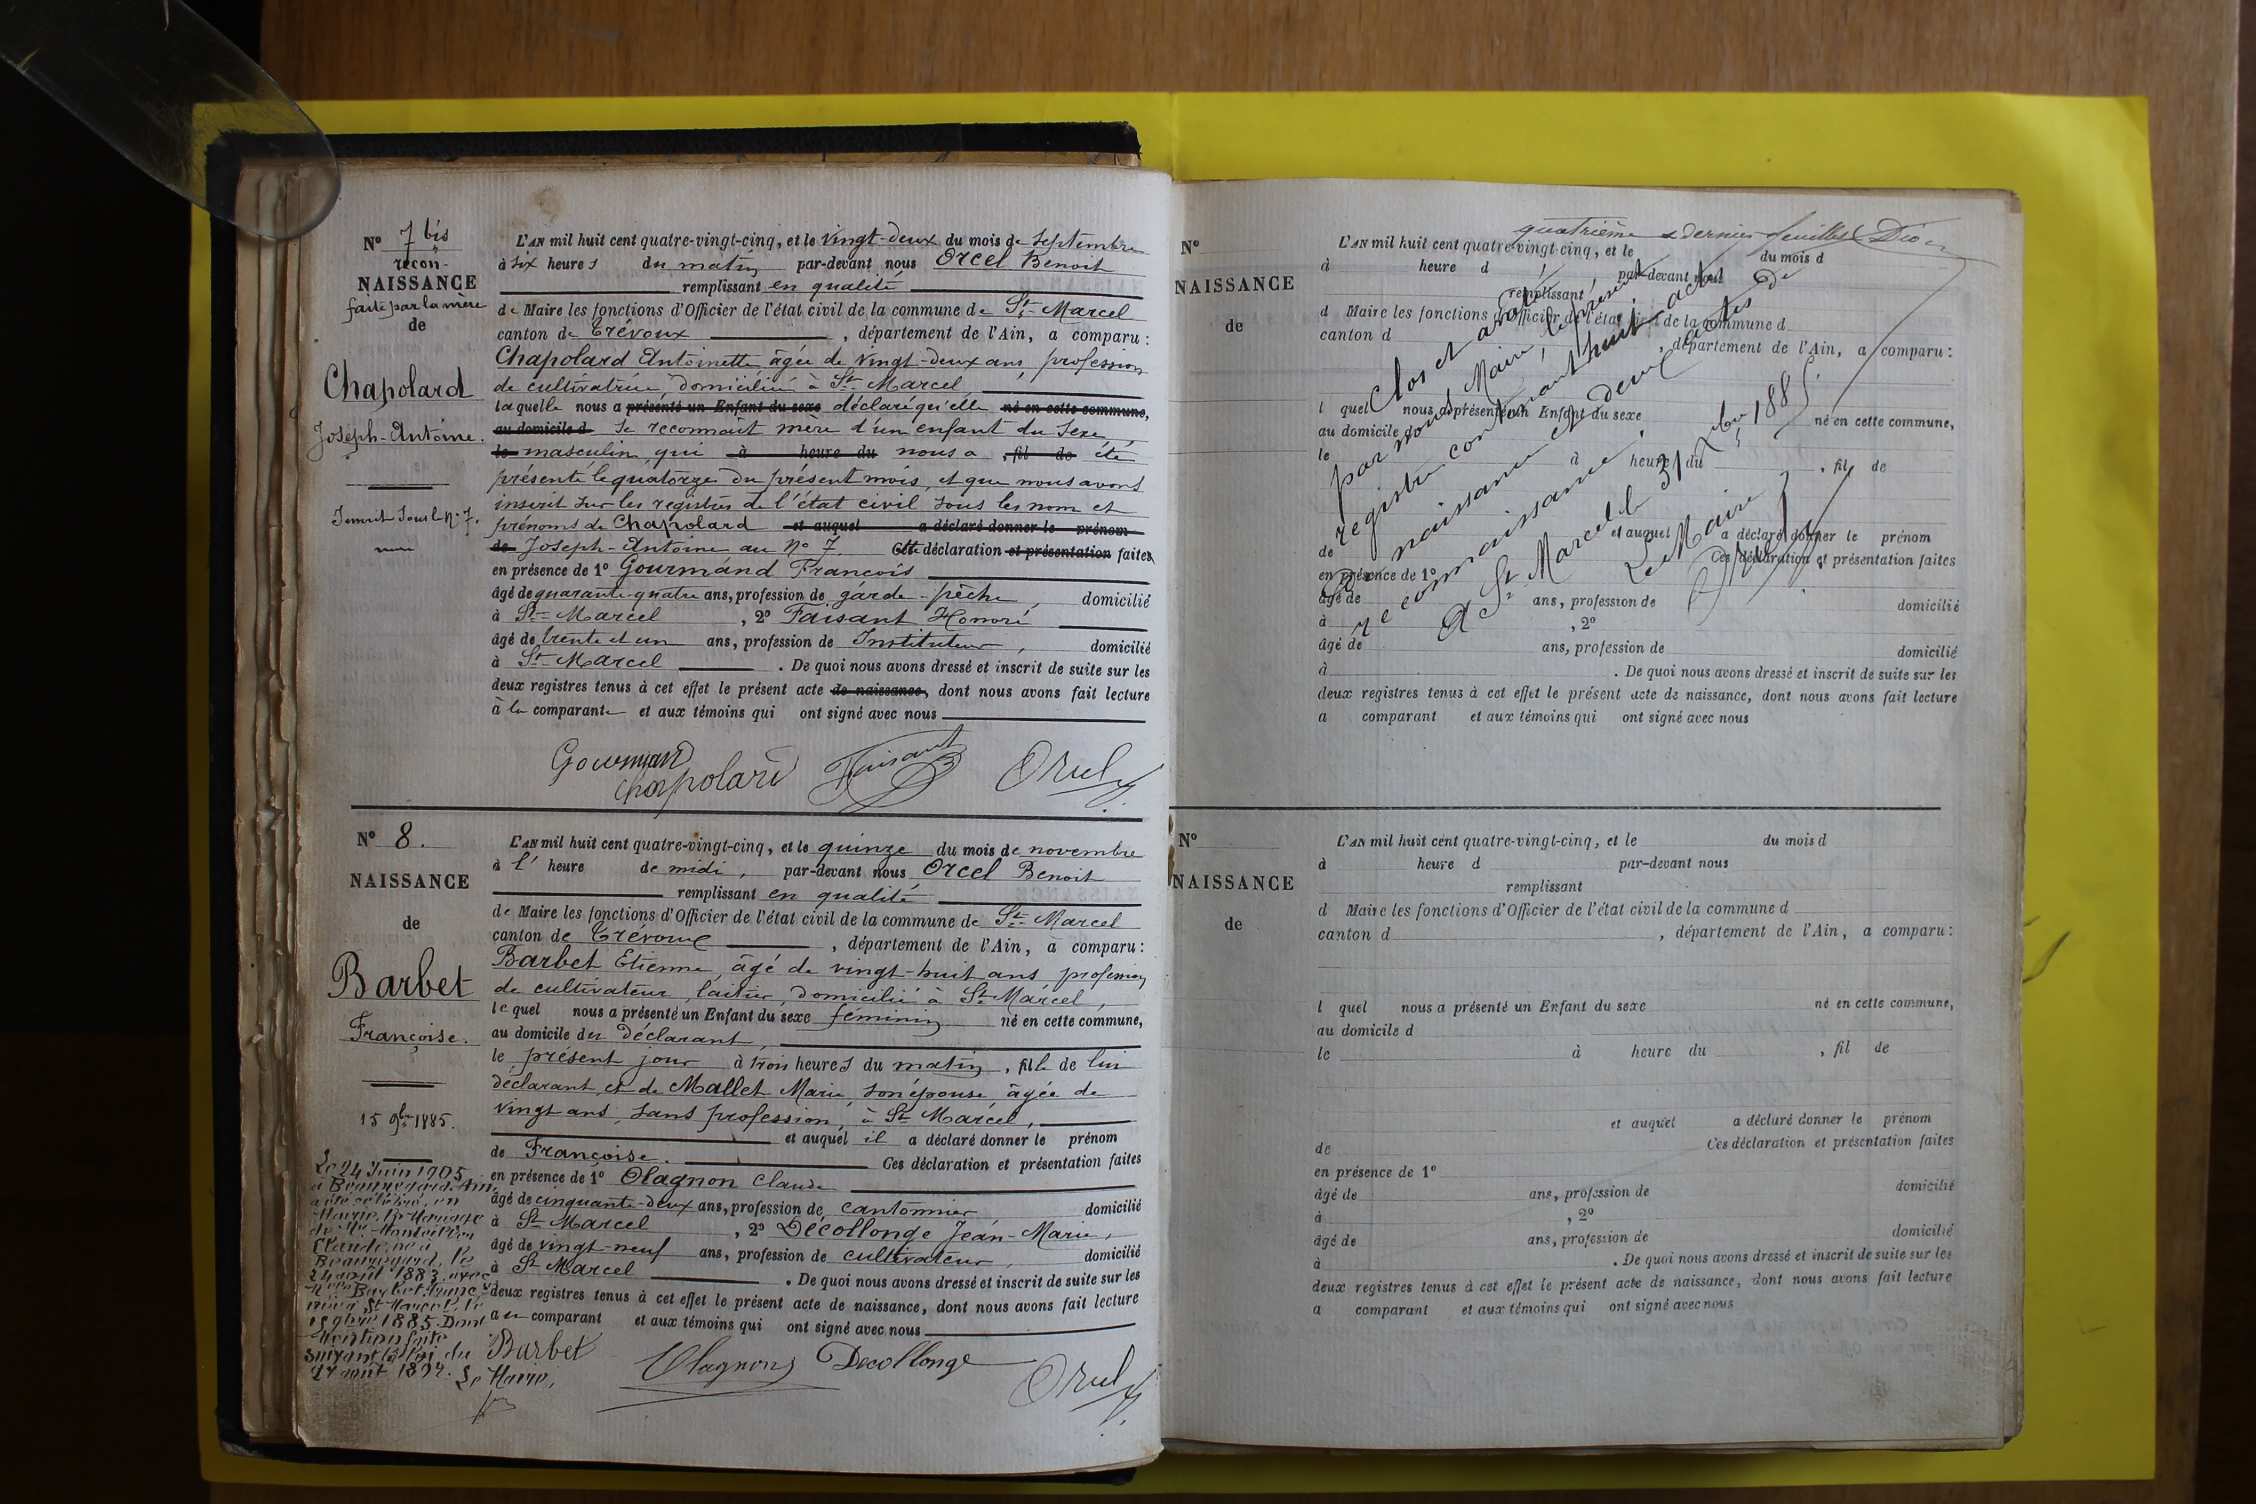 N° 7 bis
recon-
NAISSANCE
faite par la mère
de
Chapolard
Joseph-Antoine.
Inscrit sous le N° 7.
L'AN mil huit cent quatre-vingt-cinq, et le vingt-deux du mois de septembre
à six heures du matin par-devant nous Orcel Benoit
remplissant en qualité
de Maire les fonctions d'Officier de l'état civil de la commune de St Marcel
canton de Trévoux, département de l'Ain, a comparu :
Chapolard Antoinette, âgée de vingt-deux ans, profession
de cultivatrice, domiciliée à St Marcel
laquelle nous a présenté un Enfant du sexe déclaré qu'elle né en cette commune,
au domicile d se reconnaît mère d'un enfant du sexe
le masculin qui à heure du nous a , fil de été
présenté le quatorze du présent mois, et que nous avons
inscrit sur les registres de l'état civil sous les nom et
prénoms de Chapolard et auquel a déclaré donner le prénom
de Joseph-Antoine au N° 7. Cette déclaration et présentation faites
en présence de 1° Gourmand François
âgé de quarante-quatre ans, profession de garde-pêche, domicilié
à St Marcel, 2° Faisant Honoré
âgé de trente et un ans, profession de Instituteur, domicilié
à St Marcel. De quoi nous avons dressé et inscrit de suite sur les
deux registres tenus à cet effet le présent acte de naissance, dont nous avons fait lecture
à la comparante et aux témoins qui ont signé avec nous
Gourmand
Chapolard Faisant Orcel
N° 8.
NAISSANCE
de
Barbet
Françoise.
15 9bre 1885.
Le 24 Juin 1905
à Beauregard Ain,
a été célébré en
Mairie, le Mariage
de Mr
Claude, né à
Beauregard, le
24 août 1883, avec
Barbet Franç
née à St Marcel, le
15 9bre 1885. Dont
Mention faite
suivant la loi du
17 août 1897. Le Maire,
L'AN mil huit cent quatre-vingt-cinq, et le quinze du mois de novembre
à l' heure de midi, par-devant nous Orcel Benoit
remplissant en qualité
de Maire les fonctions d'Officier de l'état civil de la commune de St Marcel
canton de Trévoux, département de l'Ain, a comparu :
Barbet Etienne, âgé de vingt-huit ans profession
de cultivateur, laitier, domicilié à St Marcel,
lequel nous a présenté un Enfant du sexe féminin né en cette commune,
au domicile du déclarant,
le présent jour à trois heures du matin, fille de lui
déclarant, et de Mallet Marie, son épouse âgée de
vingt ans, sans profession, à St Marcel,
et auquel il a déclaré donner le prénom
de Françoise. Ces déclaration et présentation faites
en présence de 1° Olagnon Claude
âgé de cinquante-deux ans, profession de cantonnier domicilié
à St Marcel, 2° Décollonge Jean-Marie,
âgé de vingt-neuf ans, profession de cultivateur, domicilié
à St Marcel. De quoi nous avons dressé et inscrit de suite sur les
deux registres tenus à cet effet le présent acte de naissance, dont nous avons fait lecture
au comparant et aux témoins qui ont signé avec nous
Barbet Olagnon Decollonge Orcel
quatrième & dernier feuillet
N°
NAISSANCE
de
L'AN mil huit cent quatre-vingt-cinq, et le du mois d
à heure d par-devant nous
remplissant
d Maire les fonctions d'Officier de l'état civil de la commune d
canton d , département de l'Ain, a comparu :
l quel nous a présenté un Enfant du sexe né en cette commune,
au domicile d
le à heure du , fil de
et auquel a déclaré donner le prénom
de Ces déclaration et présentation faites
en présence de 1°
âgé de ans, profession de domicilié
à , 2°
âgé de ans, profession de domicilié
à . De quoi nous avons dressé et inscrit de suite sur les
deux registres tenus à cet effet le présent acte de naissance, dont nous avons fait lecture
a comparant et aux témoins qui ont signé avec nous
Clos et arrêté
par nous, Maire, le présent
registre contenant huit actes de
naissance et deux actes de
reconnaissance.
A St Marcel le 31 Xbre 1885.
Le Maire
Orcel
N°
NAISSANCE
de
L'AN mil huit cent quatre-vingt-cinq, et le du mois d
à heure d par-devant nous
remplissant
d Maire les fonctions d'Officier de l'état civil de la commune d
canton d , département de l'Ain, a comparu :
l quel nous a présenté un Enfant du sexe né en cette commune,
au domicile d
le à heure du , fil de
et auquel a déclaré donner le prénom
de Ces déclaration et présentation faites
en présence de 1°
âgé de ans, profession de domicilié
à , 2°
âgé de ans, profession de domicilié
à . De quoi nous avons dressé et inscrit de suite sur les
deux registres tenus à cet effet le présent acte de naissance, dont nous avons fait lecture
a comparant et aux témoins qui ont signé avec nous